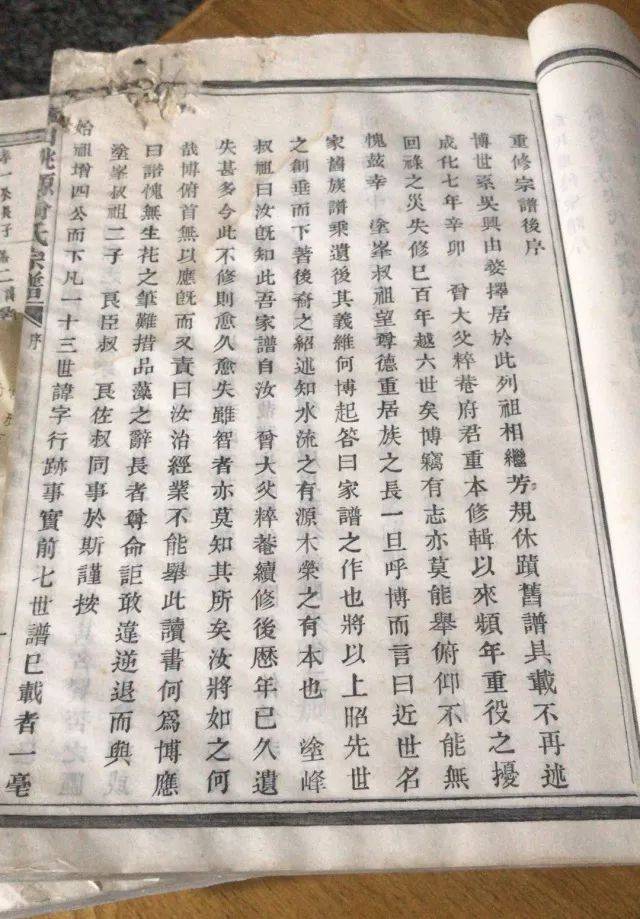 重修宗譜後序
博世系吳興由婺擇居於此列祖相繼芳規休蹟舊譜具載不再述
成化七年辛卯 曾大父粹菴府君重本修輯以來頻年重役之擾
回祿之災失修巳百年越六世矣博竊有志亦莫能舉俯仰不能無
愧兹幸 塗峯叔祖望尊德重居族之長一旦呼博而言曰近世名
家舊族譜乘遺後其義維何博起答曰家譜之作也將以上昭先世
之創垂而下著後裔之紹述知水流之有源木榮之有本也 塗峰
叔祖曰汝旣知此吾家譜自汝 曾大父粹菴續修後歷年已久遺
失甚多今此不修則愈久愈失雖智者亦莫知其所矣汝將如之何
哉博俯首無以應旣而又責曰汝治經業不能舉此讀書何爲博應
曰諾愧無生花之筆難措品藻之辭長者尊命詎敢違逆退而與
塗峯叔祖二子 良臣叔 良佐叔同事於斯謹按
始祖增四公而下凡一十三世諱字行跡事實前七世譜巳載者一毫
桃源 氏宗譜 序